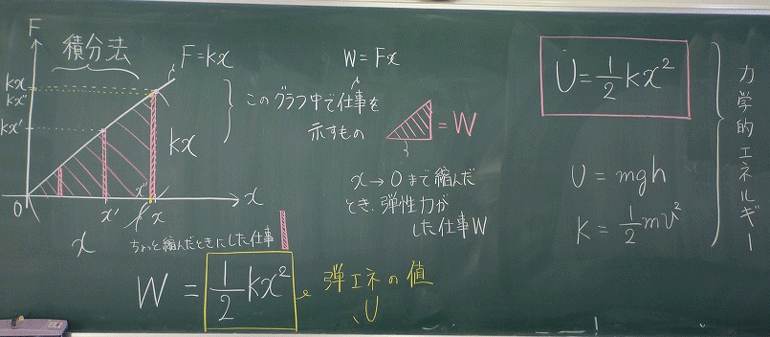 F
積分法
F=kx
kx
kx″
kx′
kx
0
x′
x″
x
x
x
ちょっと縮んだときにした仕事
W = 1/2 kx²
弾エネの値
U
W=Fx
このグラフ中で仕事を
示すもの
= W
x→0まで縮んだ
とき、弾性力が
した仕事W
U=1/2 kx²
U = mgh
K = 1/2 mv²
力学的エネルギー